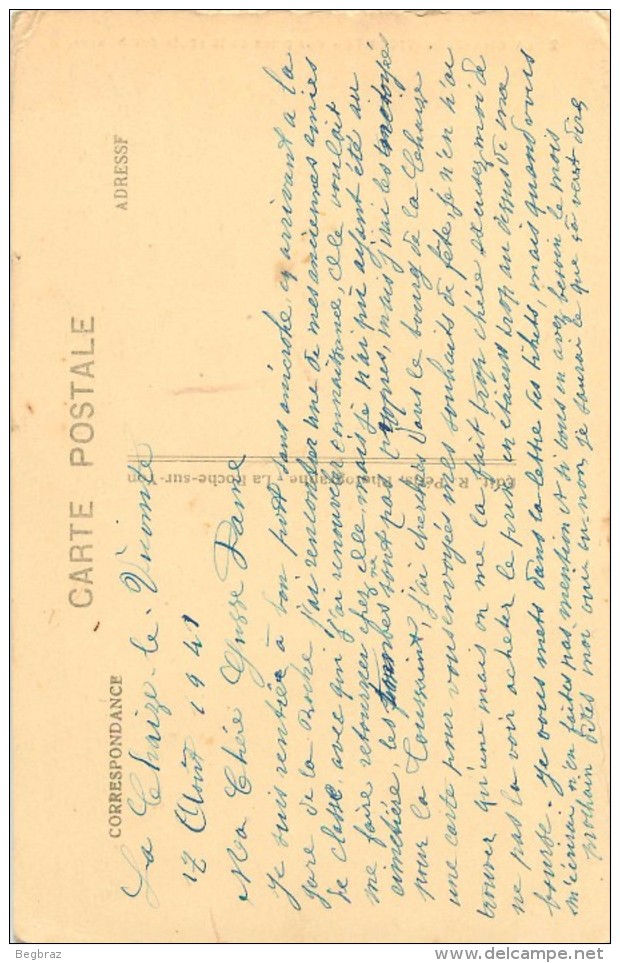 CARTE POSTALE
CORRESPONDANCE
ADRESSE
La Chaize-le-Vicomte
17 Août 1941
Ma Chère Grosse Dame
Je suis rentrée à bon port sans anicroche, en arrivant à la
gare de la Roche j'ai rencontrer une de mes anciennes amies
de classe, avec qui j'ai renouveler connaitance, elle voulait
me faire retourner chez elle mais je n'ai pu ayant été au
cimetière, les tombes sont pas propres, mais j'irai les nettoyes
pour la Toussaint, j'ai cherchée dans le bourg de la Chaize
une carte pour vous envoyés mes souhaits de fête, je n'en n'ai
trouver qu'une mais on me la fait trop chère excusez moi de
ne pas la voir acheter le prix en étaient trop au dessus de ma
bourse. Je vous mets dans la lettre les tikets, mais quand vous
m'écrirez n'en faites pas mention et si vous en avez besoin le mois
prochain dites moi oui ou non, je saurai ce que ça veut dire
Edit. R. Pépin, Photographe, La Roche-sur-Yon
Begbraz
delcampe.net